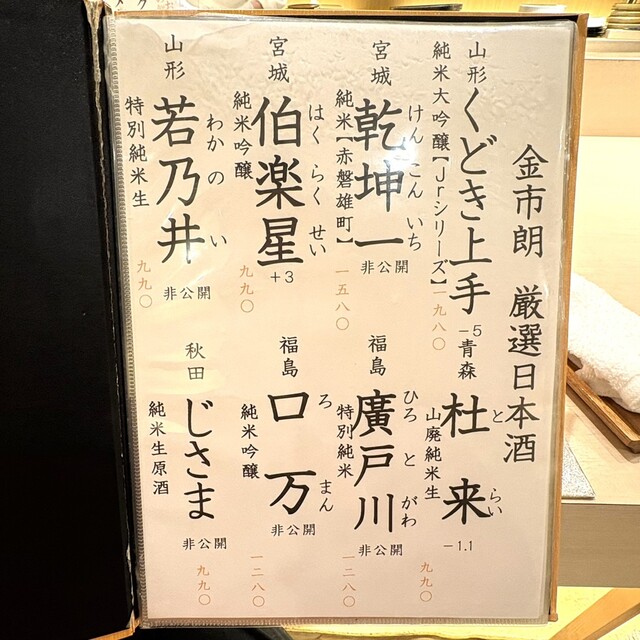 金市朗 厳選日本酒
山形
くどき上手
純米大吟醸【Jrシリーズ】
-5
一九八〇
宮城
乾坤一
けんこん いち
純米【赤磐雄町】
非公開
一五八〇
宮城
伯楽星
はく らく せい
純米吟醸
+3
九九〇
山形
若乃井
わか の い
特別純米生
非公開
九九〇
青森
杜来
と らい
山廃純米生
-1.1
九九〇
福島
廣戸川
ひろ と がわ
特別純米
非公開
一二八〇
福島
口万
ろ まん
純米吟醸
非公開
一二八〇
秋田
じさま
純米生原酒
非公開
九九〇